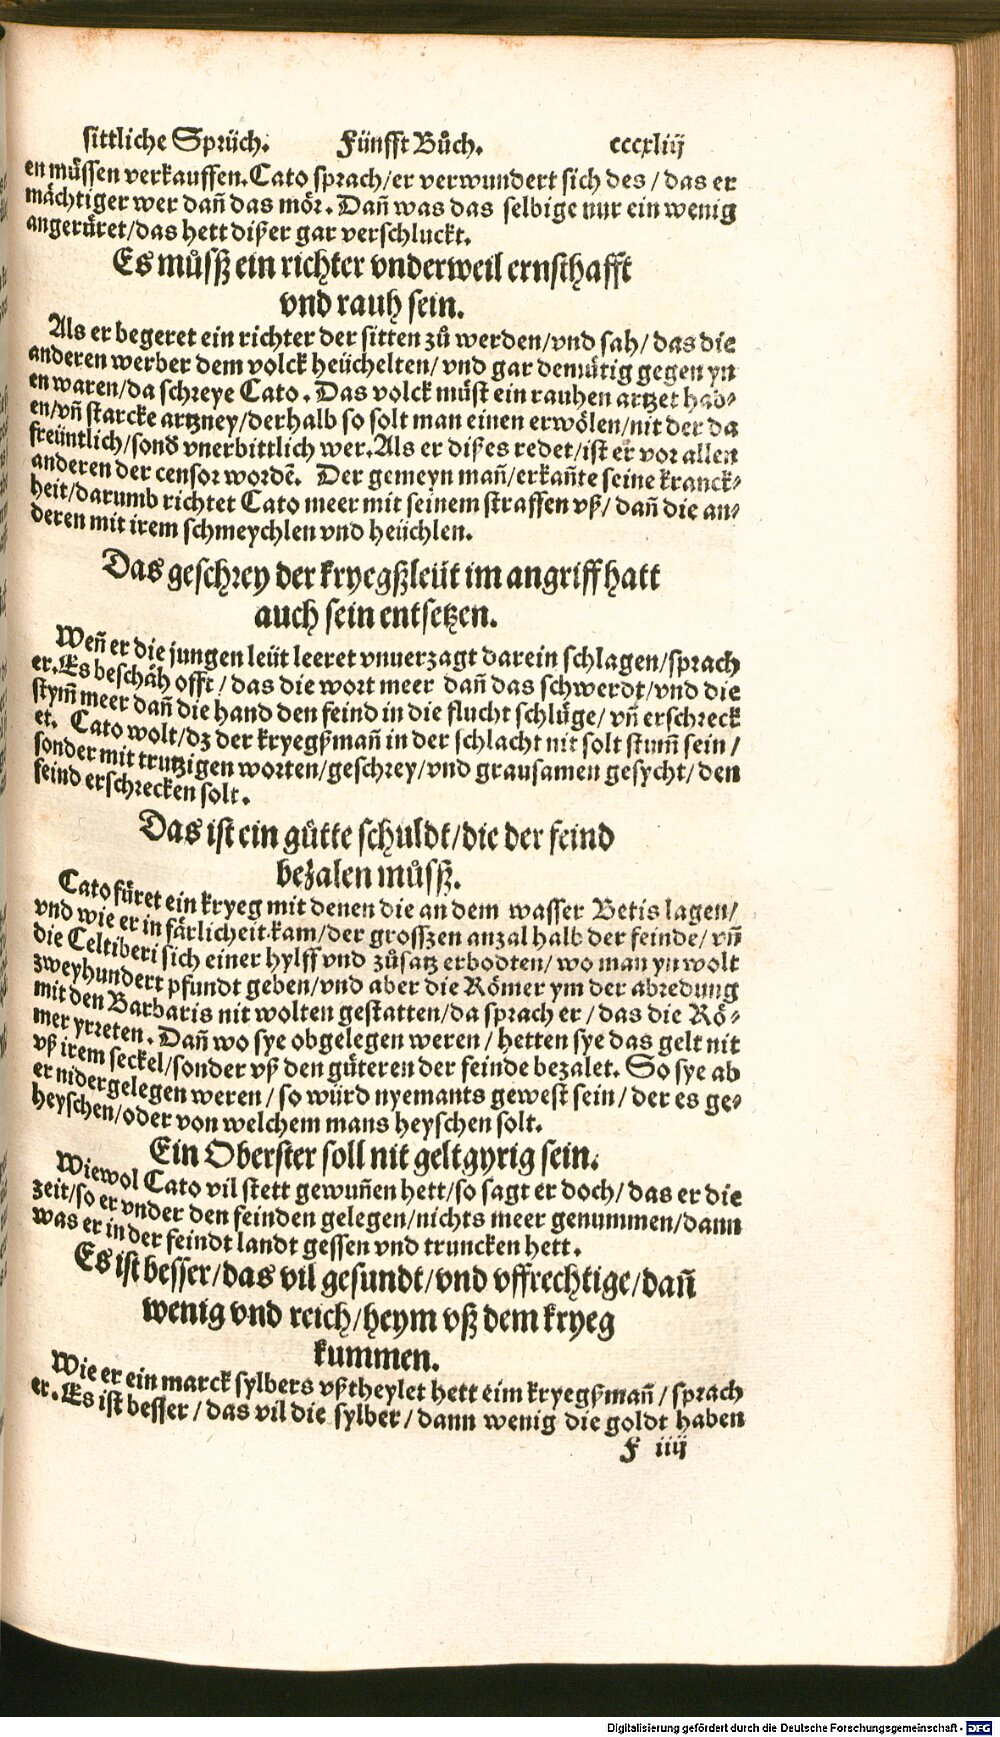 sittliche Sprüch. Fünfft Bůch. cccxliij
en müssen verkauffen. Cato sprach/er verwundert sich des/das er
mächtiger wer dañ das mör. Dañ was das selbige nur ein wenig
angerüret/das hett dißer gar verschluckt.
Es můsß ein richter vnderweil ernsthafft
vnd rauh sein.
Als er begeret ein richter der sitten zů werden/vnd sah/das die
anderen werber dem volck heüchelten/vnd gar demütig gegen yn
en waren/da schreye Cato. Das volck müst ein rauhen artzet hab⸗
en/vñ starcke artzney/derhalb so solt man einen erwölen/nit der da
freüntlich/sond̕ vnerbittlich wer. Als er dißes redet/ist er vor allen
anderen der censor wordẽ. Der gemeyn mañ/erkañte seine kranck⸗
heit/darumb richtet Cato meer mit seinem straffen vß/dañ die an⸗
deren mit irem schmeychlen vnd heüchlen.
Das geschrey der kryegßleüt im angriff hatt
auch sein entsetzen.
Weñ er die jungen leüt leeret vnuerzagt darein schlagen/sprach
er. Es beschäh offt/das die wort meer dañ das schwerdt/vnd die
stym̃ meer dañ die hand den feind in die flucht schlüge/vñ erschreck
et. Cato wolt/dz der kryegßmañ in der schlacht nit solt stum̃ sein/
sonder mit trutzigen worten/geschrey/vnd grausamen gesycht/den
feind erschrecken solt.
Das ist ein gütte schuldt/die der feind
bezalen můsß.
Cato füret ein kryeg mit denen die an dem wasser Betis lagen/
vnd wie er in färlicheit kam/der grosszen anzal halb der feinde/vñ
die Celtiberi sich einer hylff vnd zůsatz erbodten/wo man yn wolt
zweyhundert pfundt geben/vnd aber die Römer ym der abredung
mit den Barbaris nit wolten gestatten/da sprach er/das die Rö⸗
mer yrreten. Dañ wo sye obgelegen weren/hetten sye das gelt nit
vß irem seckel/sonder vß den güteren der feinde bezalet. So sye ab
er nidergelegen weren/so würd nyemants gewest sein/der es ge⸗
heyschen/oder von welchem mans heyschen solt.
Ein Oberster soll nit geltgyrig sein.
Wiewol Cato vil stett gewuñen hett/so sagt er doch/das er die
zeit/so er vnder den feinden gelegen/nichts meer genummen/dann
was er in der feindt landt gessen vnd truncken hett.
Es ist besser/das vil gesundt/vnd vffrechtige/dañ
wenig vnd reich/heym vß dem kryeg
kummen.
Wie er ein marck sylbers vßtheylet hett eim kryegßmañ/sprach
er. Es ist besser/das vil die sylber/dann wenig die goldt haben
F iiij
Digitalisierung gefördert durch die Deutsche Forschungsgemeinschaft - DFG